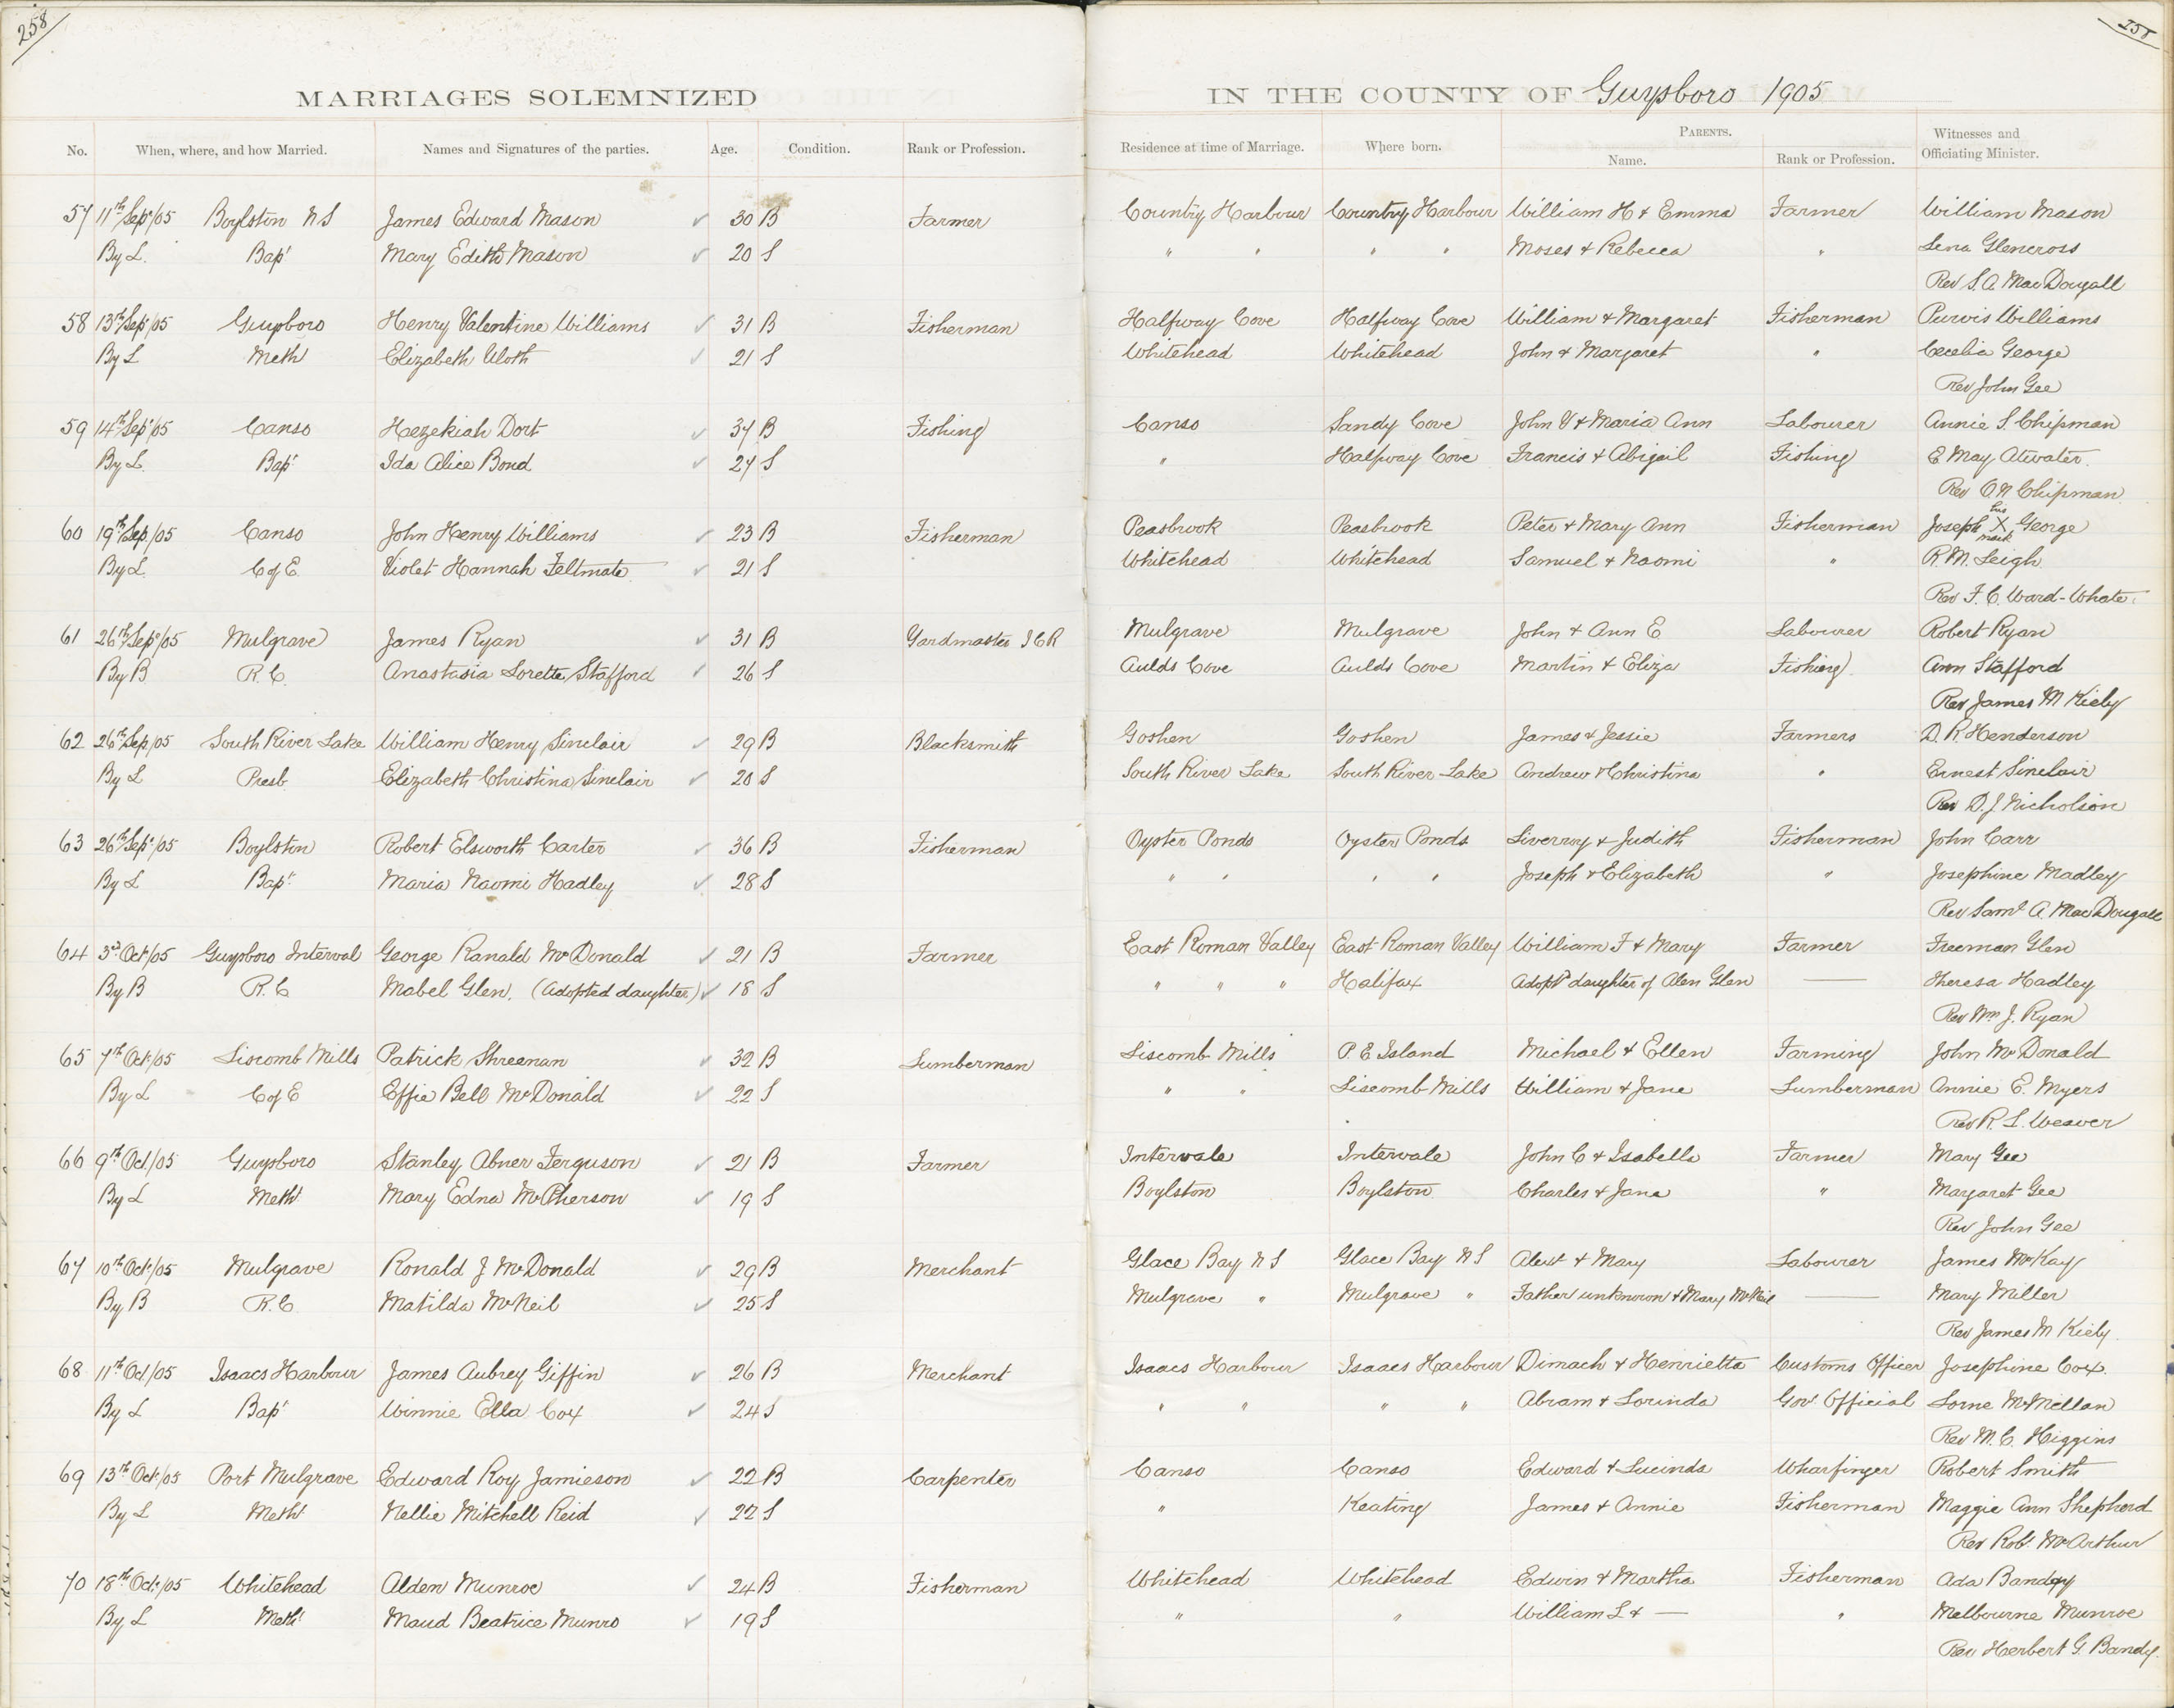 258
258
MARRIAGES SOLEMNIZED IN THE COUNTY OF Guysboro 1905
No. When, where, and how Married. Names and Signatures of the parties. Age. Condition. Rank or Profession. Residence at time of Marriage. Where born. PARENTS. Name. Rank or Profession. Witnesses and Officiating Minister.
57 11th Sep/05 Boylston N S James Edward Mason ✓ 30 B Farmer Country Harbour Country Harbour William H & Emma Farmer William Mason
By L. Bapt Mary Edith Mason ✓ 20 S " " " " Moses & Rebecca " Lena Glencross
Rev S. A. MacDougall
58 13th Sep/05 Guysboro Henry Valentine Williams ✓ 31 B Fisherman Halfway Cove Halfway Cove William & Margaret Fisherman Purvis Williams
By L Meth Elizabeth Uloth ✓ 21 S Whitehead Whitehead John & Margaret " Cecelia George
Rev John Gee
59 14th Sep/05 Canso Hezekiah Dort ✓ 37 B Fishing Canso Sandy Cove John & Maria Ann Labourer Annie S. Chipman
By L. Bapt Ida Alice Bond ✓ 27 S " Halfway Cove Francis & Abigail Fishing E May Atwater.
Rev O N Chipman
60 19th Sep/05 Canso John Henry Williams ✓ 23 B Fisherman Peasbrook Peasbrook Peter & Mary Ann Fisherman Joseph his X mark George
By L. C of E. Violet Hannah Feltmate ✓ 21 S Whitehead Whitehead Samuel & Naomi " R. M. Leigh
Rev F. C. Ward-Whate.
61 26th Sep/05 Mulgrave James Ryan ✓ 31 B Yardmaster I C R Mulgrave Mulgrave John & Ann E Labourer Robert Ryan
By B R. C. Anastasia Lorette Stafford ✓ 26 S Aulds Cove Aulds Cove Martin & Eliza Fishing Ann Stafford
Rev James M Kiely
62 26th Sep/05 South River Lake William Henry Sinclair ✓ 29 B Blacksmith Goshen Goshen James & Jessie Farmers D. R. Henderson
By L Presb. Elizabeth Christina Sinclair ✓ 20 S South River Lake South River Lake Andrew & Christina " Ernest Sinclair
Rev D. J Nicholson
63 26th Sep/05 Boylston Robert Elsworth Carter ✓ 36 B Fisherman Oyster Ponds Oyster Ponds & Judith Fisherman John Carr
By L Bapt Maria Naomi Hadley ✓ 28 S " " " " Joseph & Elizabeth " Josephine Madley
Rev Saml A. MacDougall
64 3rd Oct/05 Guysboro Interval George Ranald McDonald ✓ 21 B Farmer East Roman Valley East Roman Valley William F & Mary Farmer Freeman Glen
By B R. C Mabel Glen. (Adopted daughter) ✓ 18 S " " " Halifax Adopt daughter of Alen Glen — Theresa Hadley
Rev Wm J. Ryan
65 7th Oct/05 Liscomb Mills Patrick Shreenan ✓ 32 B Lumberman Liscomb Mills P. E Island Michael & Ellen Farming John McDonald
By L C of E Effie Bell McDonald ✓ 22 S " " Liscomb Mills William & Jane Lumberman Annie E. Myers
Rev R. L. Weaver
66 9th Oct/05 Guysboro Stanley Abner Ferguson ✓ 21 B Farmer Intervale Intervale John C & Isabella Farmer Mary Gee
By L Meth Mary Edna McPherson ✓ 19 S Boylston Boylston Charles & Jane " Margaret Gee
Rev John Gee
67 10th Oct/05 Mulgrave Ronald J McDonald ✓ 29 B Merchant Glace Bay N S Glace Bay N S & Mary Labourer James McKay
By B R. C. Matilda McNeil ✓ 25 S Mulgrave " Mulgrave " Father unknown & Mary McNeil — Mary Miller
Rev James M Kiely.
68 11th Oct/05 Isaacs Harbour James Aubrey Giffin ✓ 26 B Merchant Isaacs Harbour Isaacs Harbour Dimach & Henrietta Customs Officer Josephine Cox.
By L Bapt Winnie Ella Cox ✓ 24 S " " " " Abram & Lorinda Gov Official Lorne McMillan
Rev M. C. Higgins
69 13th Oct/05 Port Mulgrave Edward Roy Jamieson ✓ 22 B Carpenter Canso Canso Edward & Lucinda Wharfinger Robert Smith
By L Meth Nellie Mitchell Reid ✓ 22 S " Keating James & Annie Fisherman Maggie Ann Shepherd
Rev Robt McArthur
70 18th Oct/05 Whitehead Alden Munroe ✓ 24 B Fisherman Whitehead Whitehead Edwin & Martha Fisherman Ada Bandy
By L Meth Maud Beatrice Munro ✓ 19 S " " William L & — " Melbourne Munroe
Rev Herbert G. Bandy.